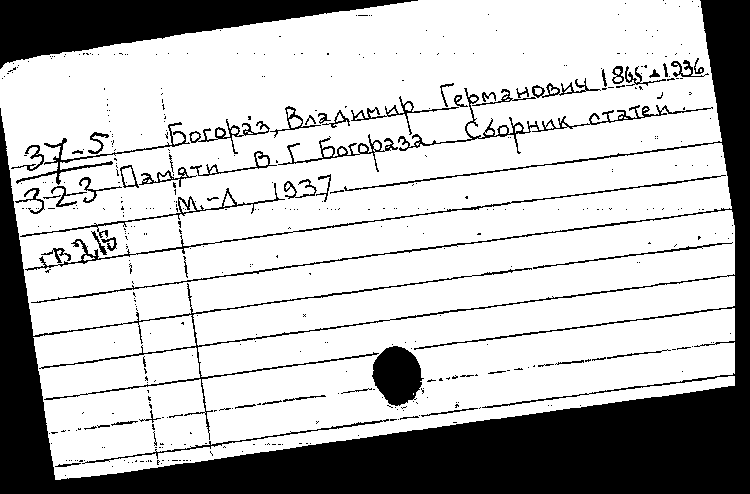 37-5
323
Богораз, Владимир Германович 1865-1936
Памяти В. Г. Богораза. Сборник статей.
М.-Л., 1937.